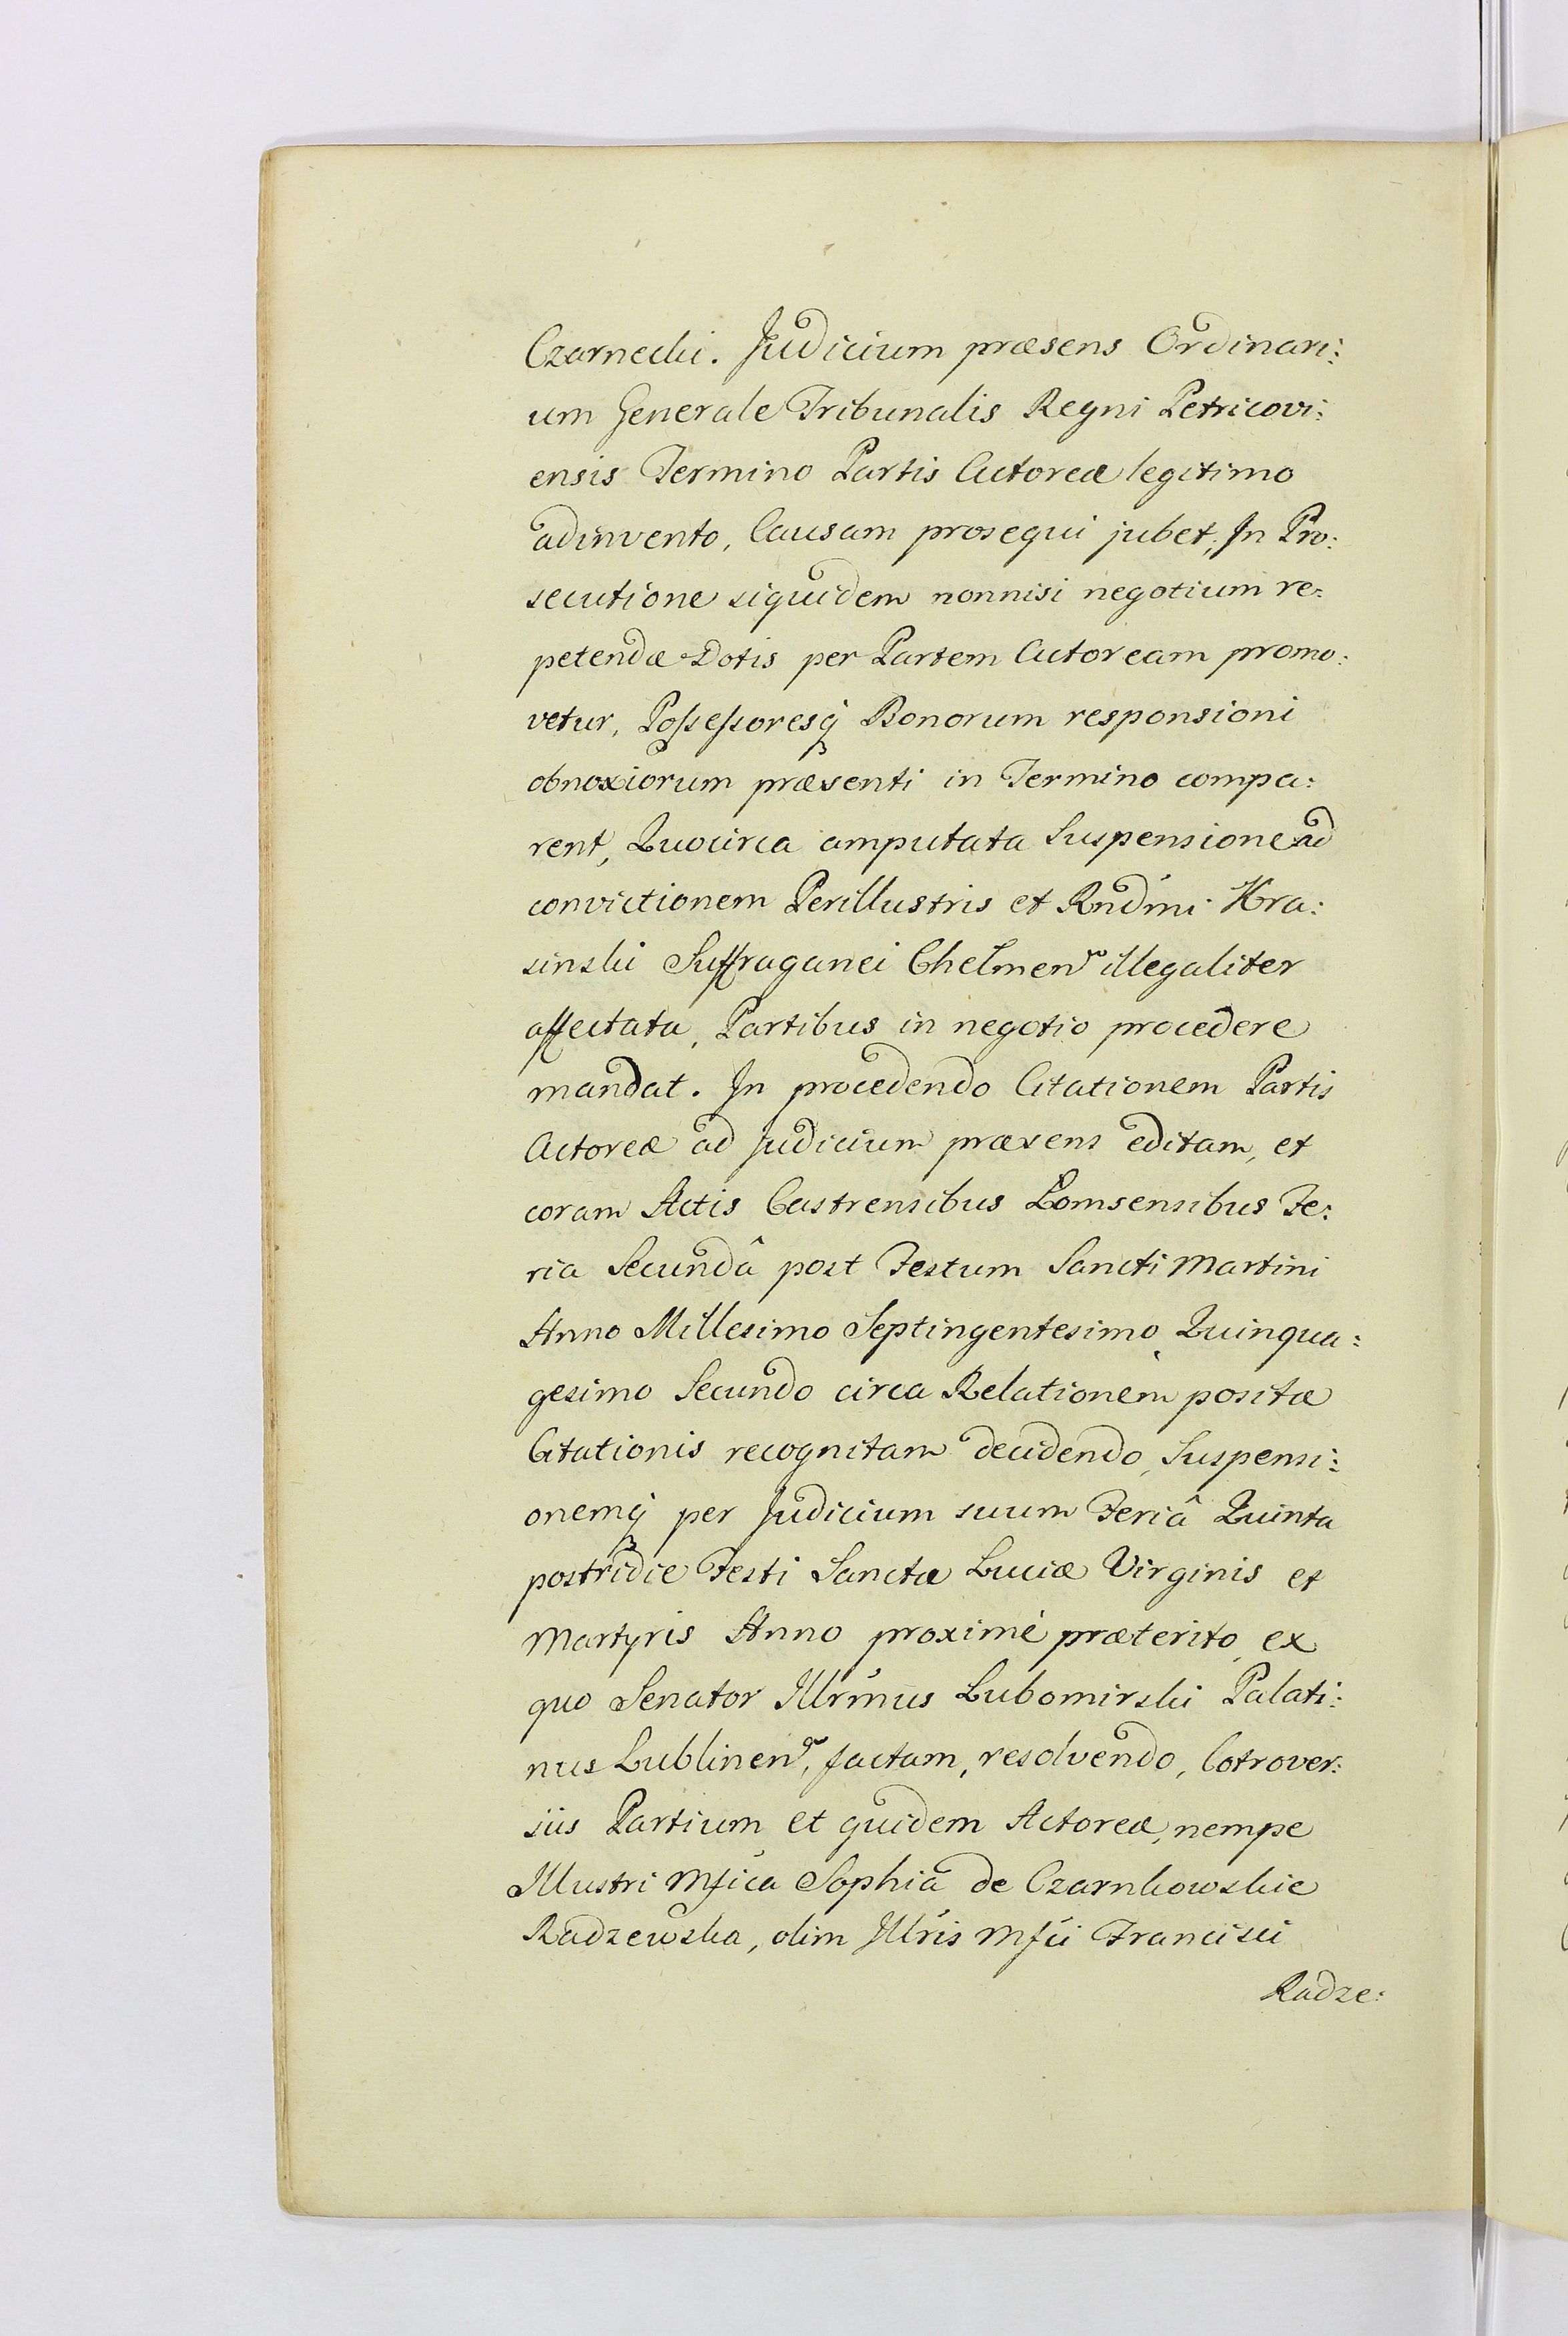 Czarnecki. Judicium præsens Ordinari:
um Generale Tribunalis Regni Petricovi:
ensis Termino Partis Actoreæ legitimo
adinvento, Causam prosequi jubet, In Pro:
secutione siquidem nonnisi negotium re:
petendæ Dotis per Partem Actoream promo:
vetur, Possessoresq́ Bonorum responsioni
obnoxiorum præsenti in Termino compa:
rent, Quocirca amputata Suspensione ad
convictionem Perillustris et Rndm̃i Kra:
sinski Suffraganei Chelmen̄ illegaliter
affectata, Partibus in negotio procedere
mandat. In procedendo Citationem Partis
Actoreæ ad Judicium præsens editam, et
coram Actis Castrensibus Lomsensibus Fe:
ria Secundâ post Festum Sancti Martini
Anno Millesimo Septingentesimo Quinqua:
gesimo Secundo circa Relationem positæ
Citationis recognitam decidendo, Suspensi:
onemq́ per Judicium suum Feriâ Quinta
postridie Festi Sanctæ Luciæ Virginis et
Martyris Anno proximè præterito, ex
quo Senator Illrm̃us Lubomirski Palati:
nus Lublinen̄, factam, resolvendo, Cotrover:
siis Partium et quidem Actoreæ, nempe
Illustri Mfica Sophia de Czarnkowskie
Radzewska, olim Illris Mfici Francisci
Radze: